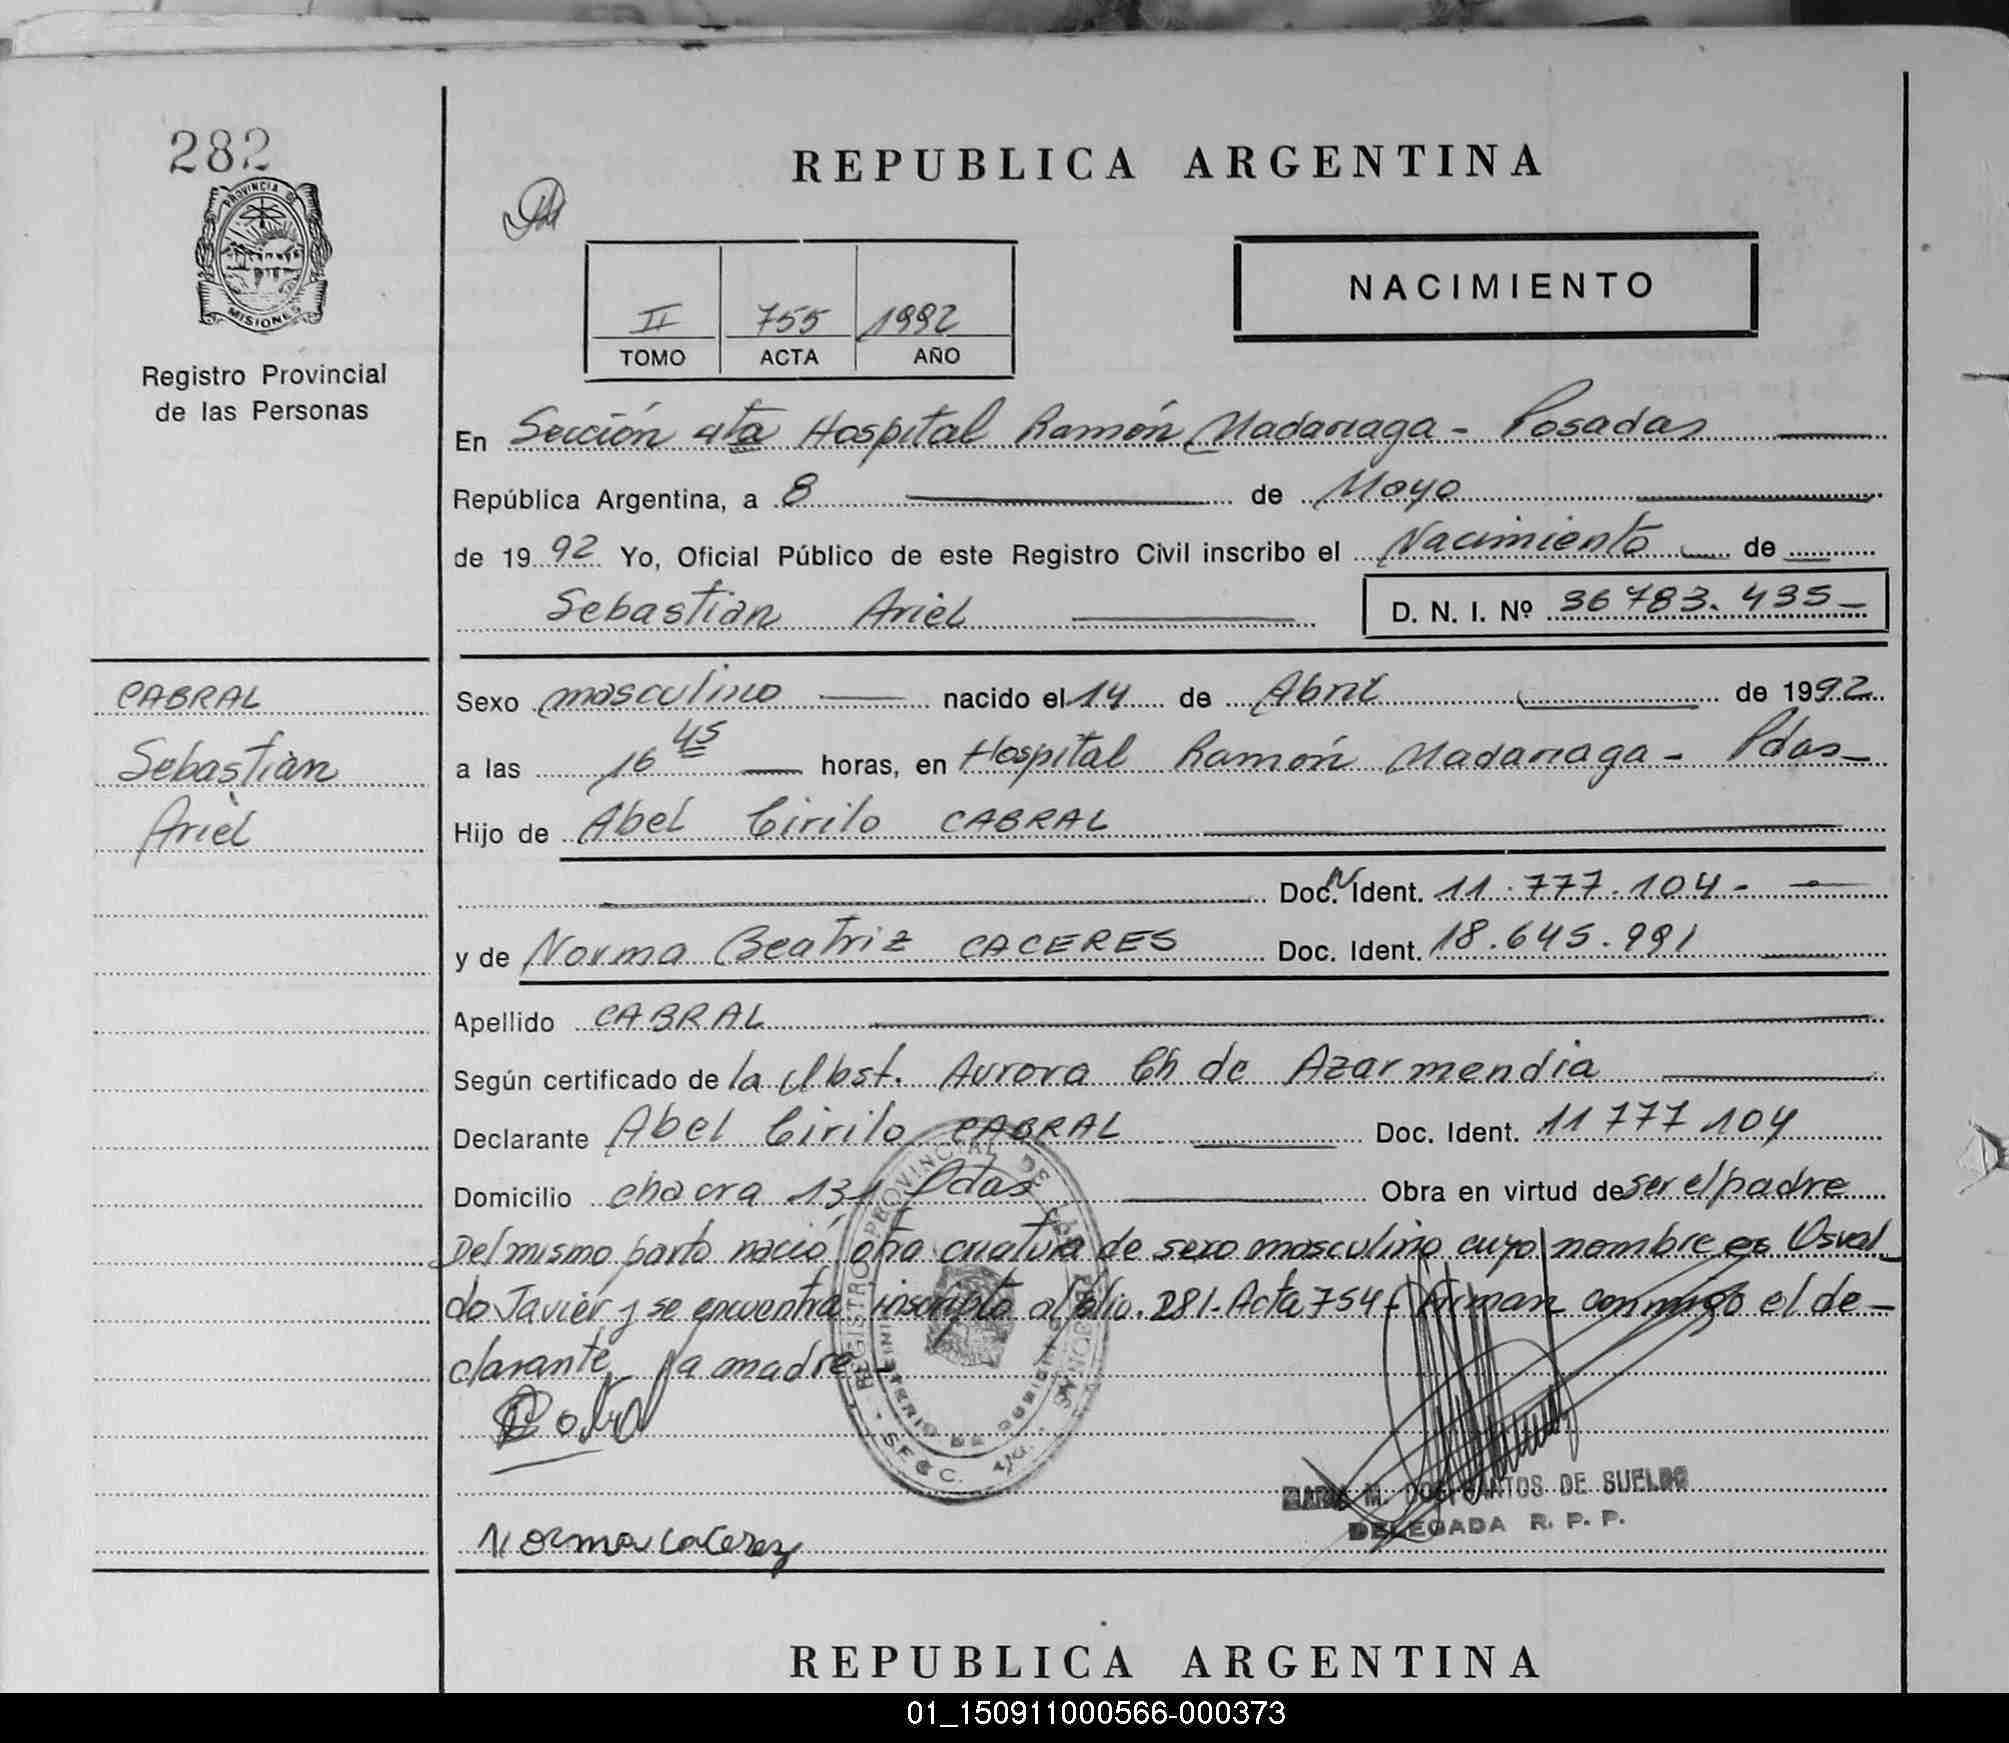 282
REPUBLICA ARGENTINA
PROVINCIA DE
MISIONES
NACIMIENTO
II 755 1992
TOMO ACTA AÑO
Registro Provincial
de las Personas
En Sección 4ta Hospital Ramón Madariaga - Posadas
República Argentina, a 8 de Mayo
de 1992 Yo, Oficial Público de este Registro Civil inscribo el Nacimiento de
Sebastian Ariel D. N. I. Nº 36783.435-
CABRAL
Sebastian
Ariel
Sexo masculino nacido el 14 de Abril de 1992
a las 16 45 horas, en Hospital Ramón Madariaga - Pdas-
Hijo de Abel Cirilo CABRAL
Doc. N Ident. 11.777.104-
y de Norma Beatriz CACERES Doc. Ident. 18.645.991
Apellido CABRAL
Según certificado de la Obst. Aurora Ch de Azarmendia
Declarante Abel Cirilo CABRAL Doc. Ident. 11777104
Domicilio chacra 131 Pdas Obra en virtud de ser el padre
Del mismo parto nació otra criatura de sexo masculino cuyo nombre es Osval
do Javier y se encuentra inscripto al folio 281-Acta 754- firman conmigo el de-
clarante la madre-
REGISTRO PROVINCIAL DE LAS PERSONAS
MINISTERIO DE GOBIERNO
SECC.
MARIA M. DOS SANTOS DE SUELDO
DELEGADA R. P. P.
Norma Caceres
REPUBLICA ARGENTINA
01_150911000566-000373